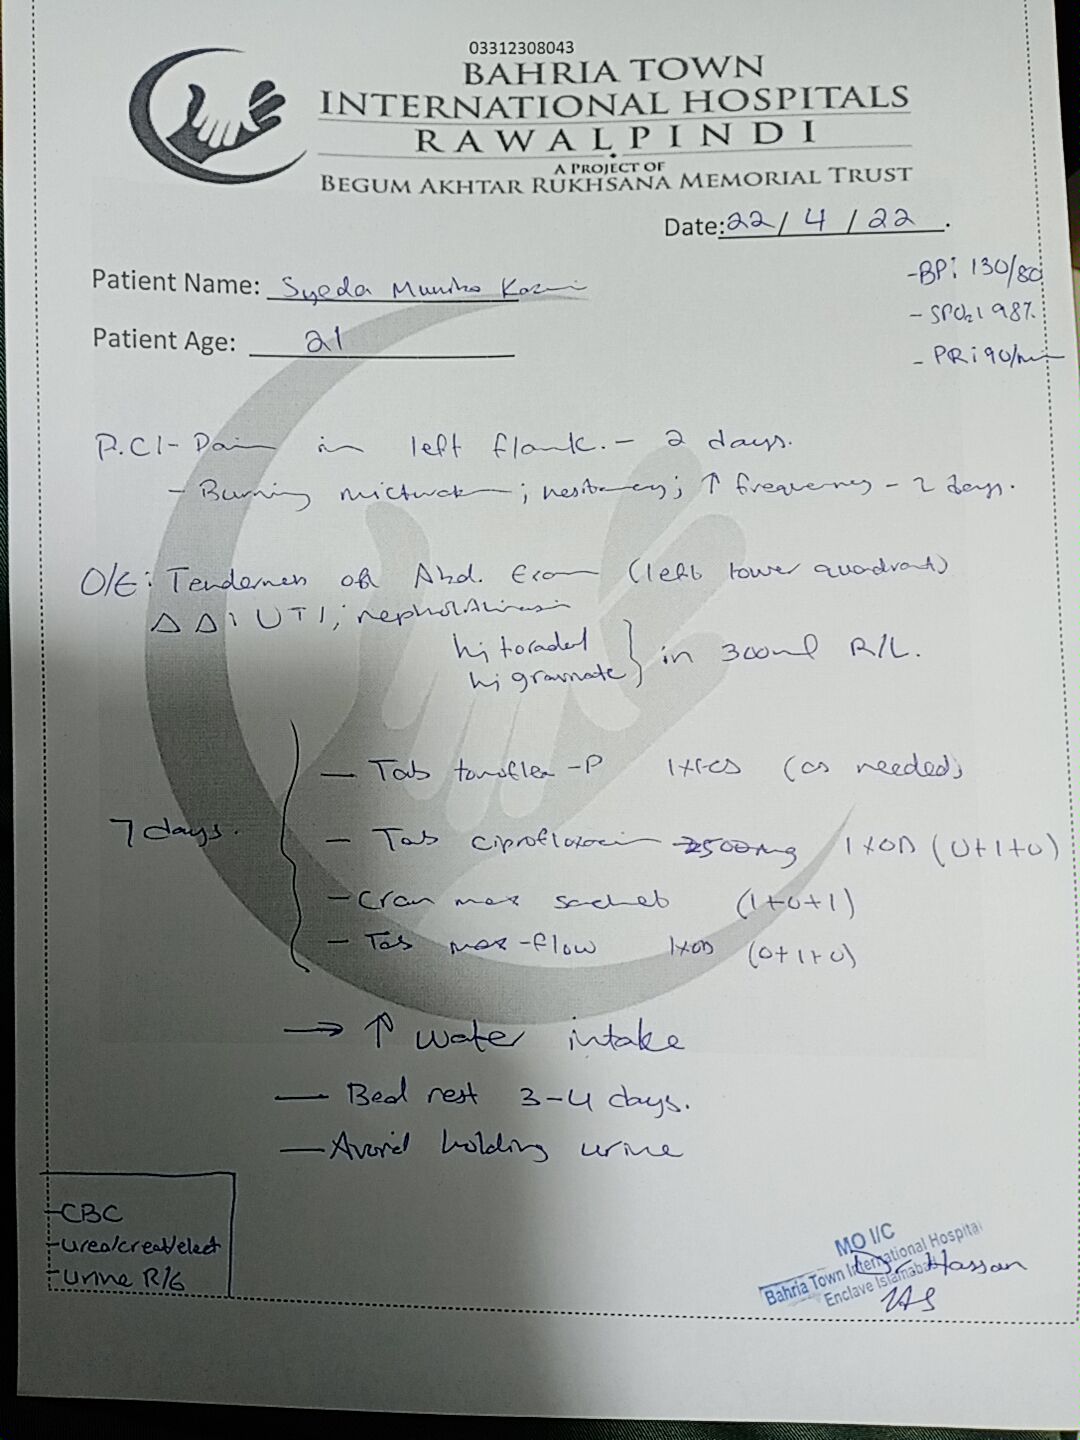 03312308043
BAHRIA TOWN
INTERNATIONAL HOSPITALS
RAWALPINDI
A PROJECT OF
BEGUM AKHTAR RUKHSANA MEMORIAL TRUST
Date: 22/4/22
Patient Name: Syeda
Patient Age: 21
-BP: 130/80
- SPO2: 98%
- PR: 90/min
P.C:- Pain in left flank. - 2 days.
- Burning micturation; hesitancy; ↑ frequency - 2 days.
O/E: Tenderness on Abd. Exam (left lower quadrant)
ΔΔ: UTI; nephrolithiasis
Inj toradol
Inj gravinate
} in 300ml R/L.
7 days.
- Tab -P (as needed)
- Tab ciprofloxacin 500mg 1xOD (0+1+0)
- Cran max sachet (1+0+1)
- Tab max-flow 1xOD (0+1+0)
→ ↑ water intake
- Bed rest 3-4 days.
- Avoid holding urine
-CBC
-urea/creat/elect
-urine R/E
MO I/C
Bahria Town International Hospital
Enclave Islamabad
Dr. Hassan